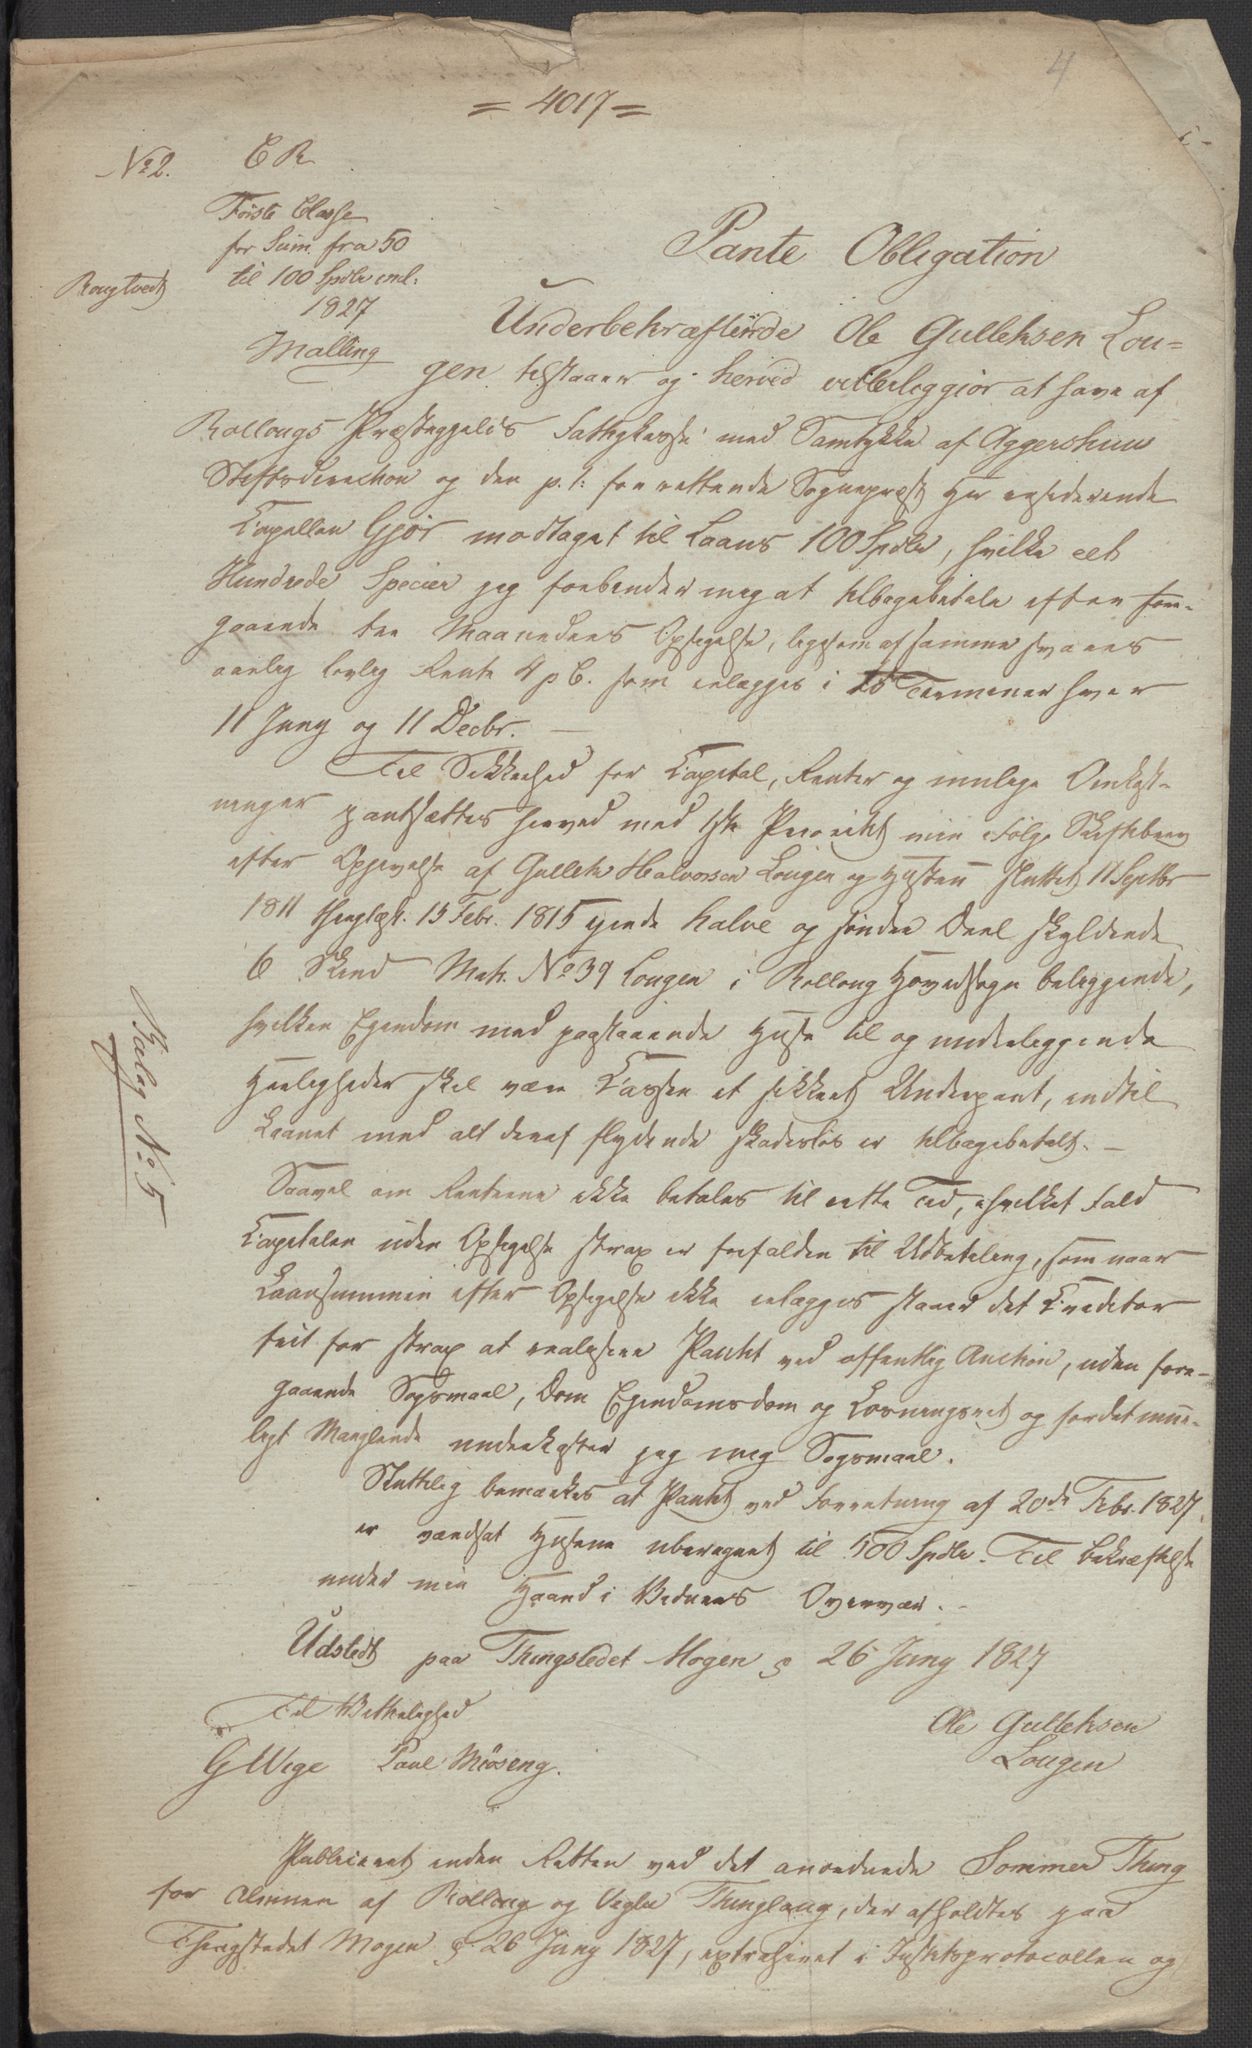 4
= 4017 =
No 2.
C R
Første Classe
for Sum. fra 50
til 100 Spdlr incl.
1827
Malling
Rougtvedt
Pante Obligation
Underbekræftende Ole Gulleksen Lou=
gen tilstaaer og herved vitterliggiør at have af
Rollougs Præstegjelds Fattigkasse med Samtykke af Aggershuus
Stiftsdirection og den p. t. forrettende Sognepræst Hr residerende
Capellan Gjør modtaget til Laans 100 Spdlr, hvilke eet
Hundrede Specier jeg forbinder mig at tilbagebetale efter fore-
gaaende tre Maaneders Opsigelse, ligesom af samme svares
aarlig lovlig Rente 4 p C. som erlægges i to Terminer hver
11 Juny og 11 Decbr. —
Til Sikkerhed for Capital, Renter og muelige Omkost-
ninger pantsættes herved med 1ste Prioritet min ifølge Skiftebrev
efter Opgivelse af Gullek Halvorsen Lougen og Hustru sluttet 11 Septbr
1811 thinglæst 15 Febr. 1815 eiende halve og søndre Deel skyldende
6 Skind Matr. No 39 Lougen i Rolloug Hovedsogn beliggende,
hvilken Eiendom med paastaaende Huse til og underliggende
Herligheder skal være Cassen et sikkert Underpant, indtil
Laanet med alt deraf flydende skadesløs er tilbagebetalt. —
Saavel om Renterne ikke betales til rette Tid, i hvilket Fald
Capitalen uden Opsigelse strax er forfalden til Udbetaling, som naar
Laansummen efter Opsigelse ikke erlægges staaer det Creditor
frit for strax at realisere Pantet ved offentlig Auction, uden fore-
gaaende Søgsmaal, Dom Eiendomsdom og Løsningsret og for det mue-
ligt Manglende underkaster jeg mig Søgsmaal.
Sluttelig bemærkes at Pantet ved Forretning af 20de Febr. 1827.
er værdsat Husene uberegnet til 500 Spdlr. Til Bekræftelse
under min Haand i Vidners Overvær. -
Udstedt paa Thingstedet Mogen d 26 Juny 1827
Til Vitterlighed
Ole Gulleksen
Lougen
G Wege Paul Miøseng.
Publiceret inden Retten ved det anordnede Sommer Thing
for Almuen af Rolloug og Vegli Thinglaug, der afholdtes paa
Thingstedet Mogen d. 26 Juny 1827, extraheret i Justitsprotocollen og
Bilag No 5